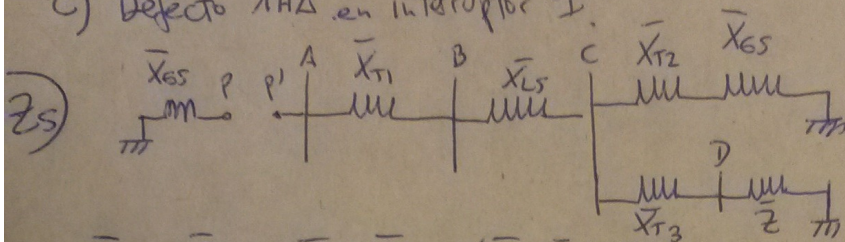 C) Defecto en interruptor I.
Zs)
X̅GS P P' A X̅T1 B X̅LS C X̅T2 X̅GS
D
X̅T3 Z̅